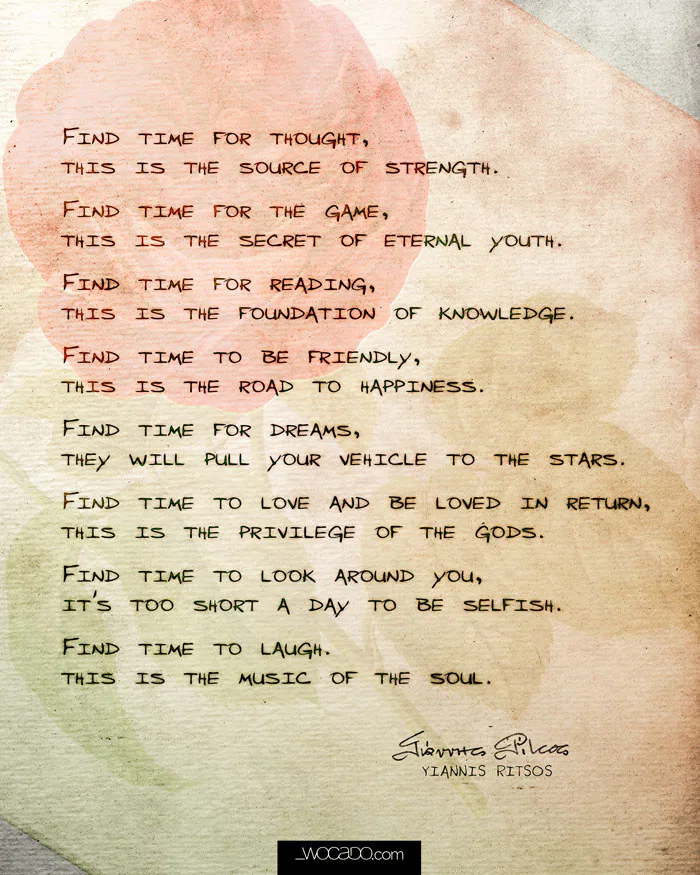 Find time for thought,
this is the source of strength.
Find time for the game,
this is the secret of eternal youth.
Find time for reading,
this is the foundation of knowledge.
Find time to be friendly,
this is the road to happiness.
Find time for dreams,
they will pull your vehicle to the stars.
Find time to love and be loved in return,
this is the privilege of the gods.
Find time to look around you,
it's too short a day to be selfish.
Find time to laugh.
this is the music of the soul.
Γιάννης Ρίτσος
YIANNIS RITSOS
_WOCADO.com